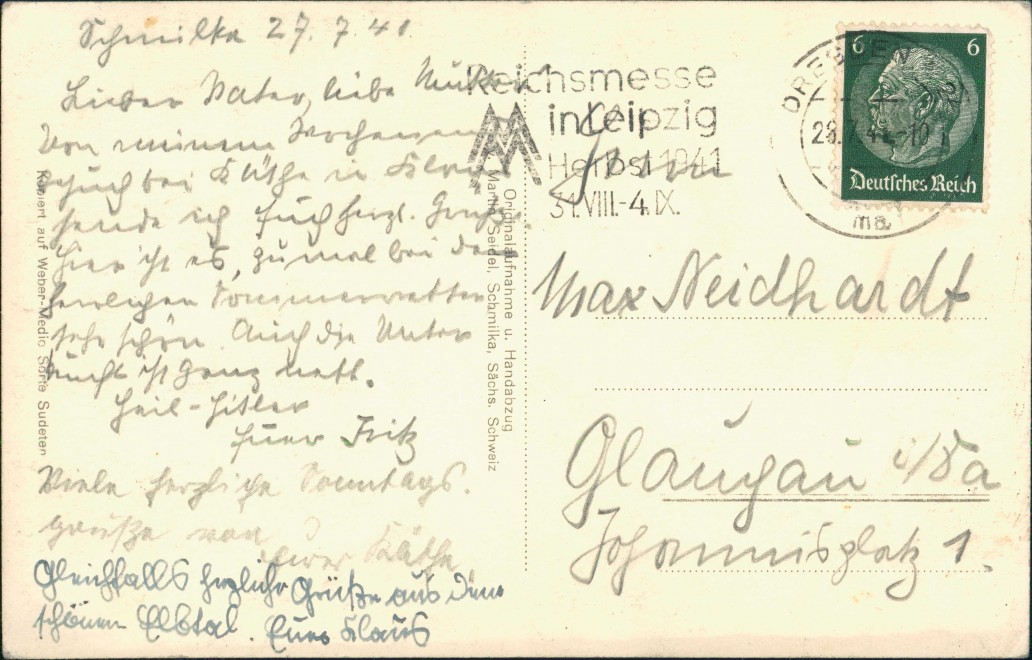 Schmilka 27. 7. 41
Lieber Vater, liebe Mutter
Von meinem Wochenend
besuch bei Käthe in
sende ich Euch herzl. Grüße
Hier ist es, zumal bei dem
herrlichen Sommerwetter
sehr schön. Auch die Unter
kunft ist ganz nett.
Heil-Hitler
Euer Fritz
Viele herzliche Sonntags.
grüße von
Eurer Käthe.
Gleichfalls herzliche Grüße aus dem
schönen Elbtal. Euer Klaus
Kopiert auf Weber-Medio Sorte Sudeten
Originalaufnahme u. Handabzug
Martin Seidel, Schmilka, Sächs. Schweiz
Reichsmesse
in Leipzig
Herbst 1941
31.VIII.-4.IX.
DRESDEN
28.7.41.-10
ma
6 6
Deutsches Reich
Max Neidhardt
Glauchau i/Sa
Johannisplatz 1.